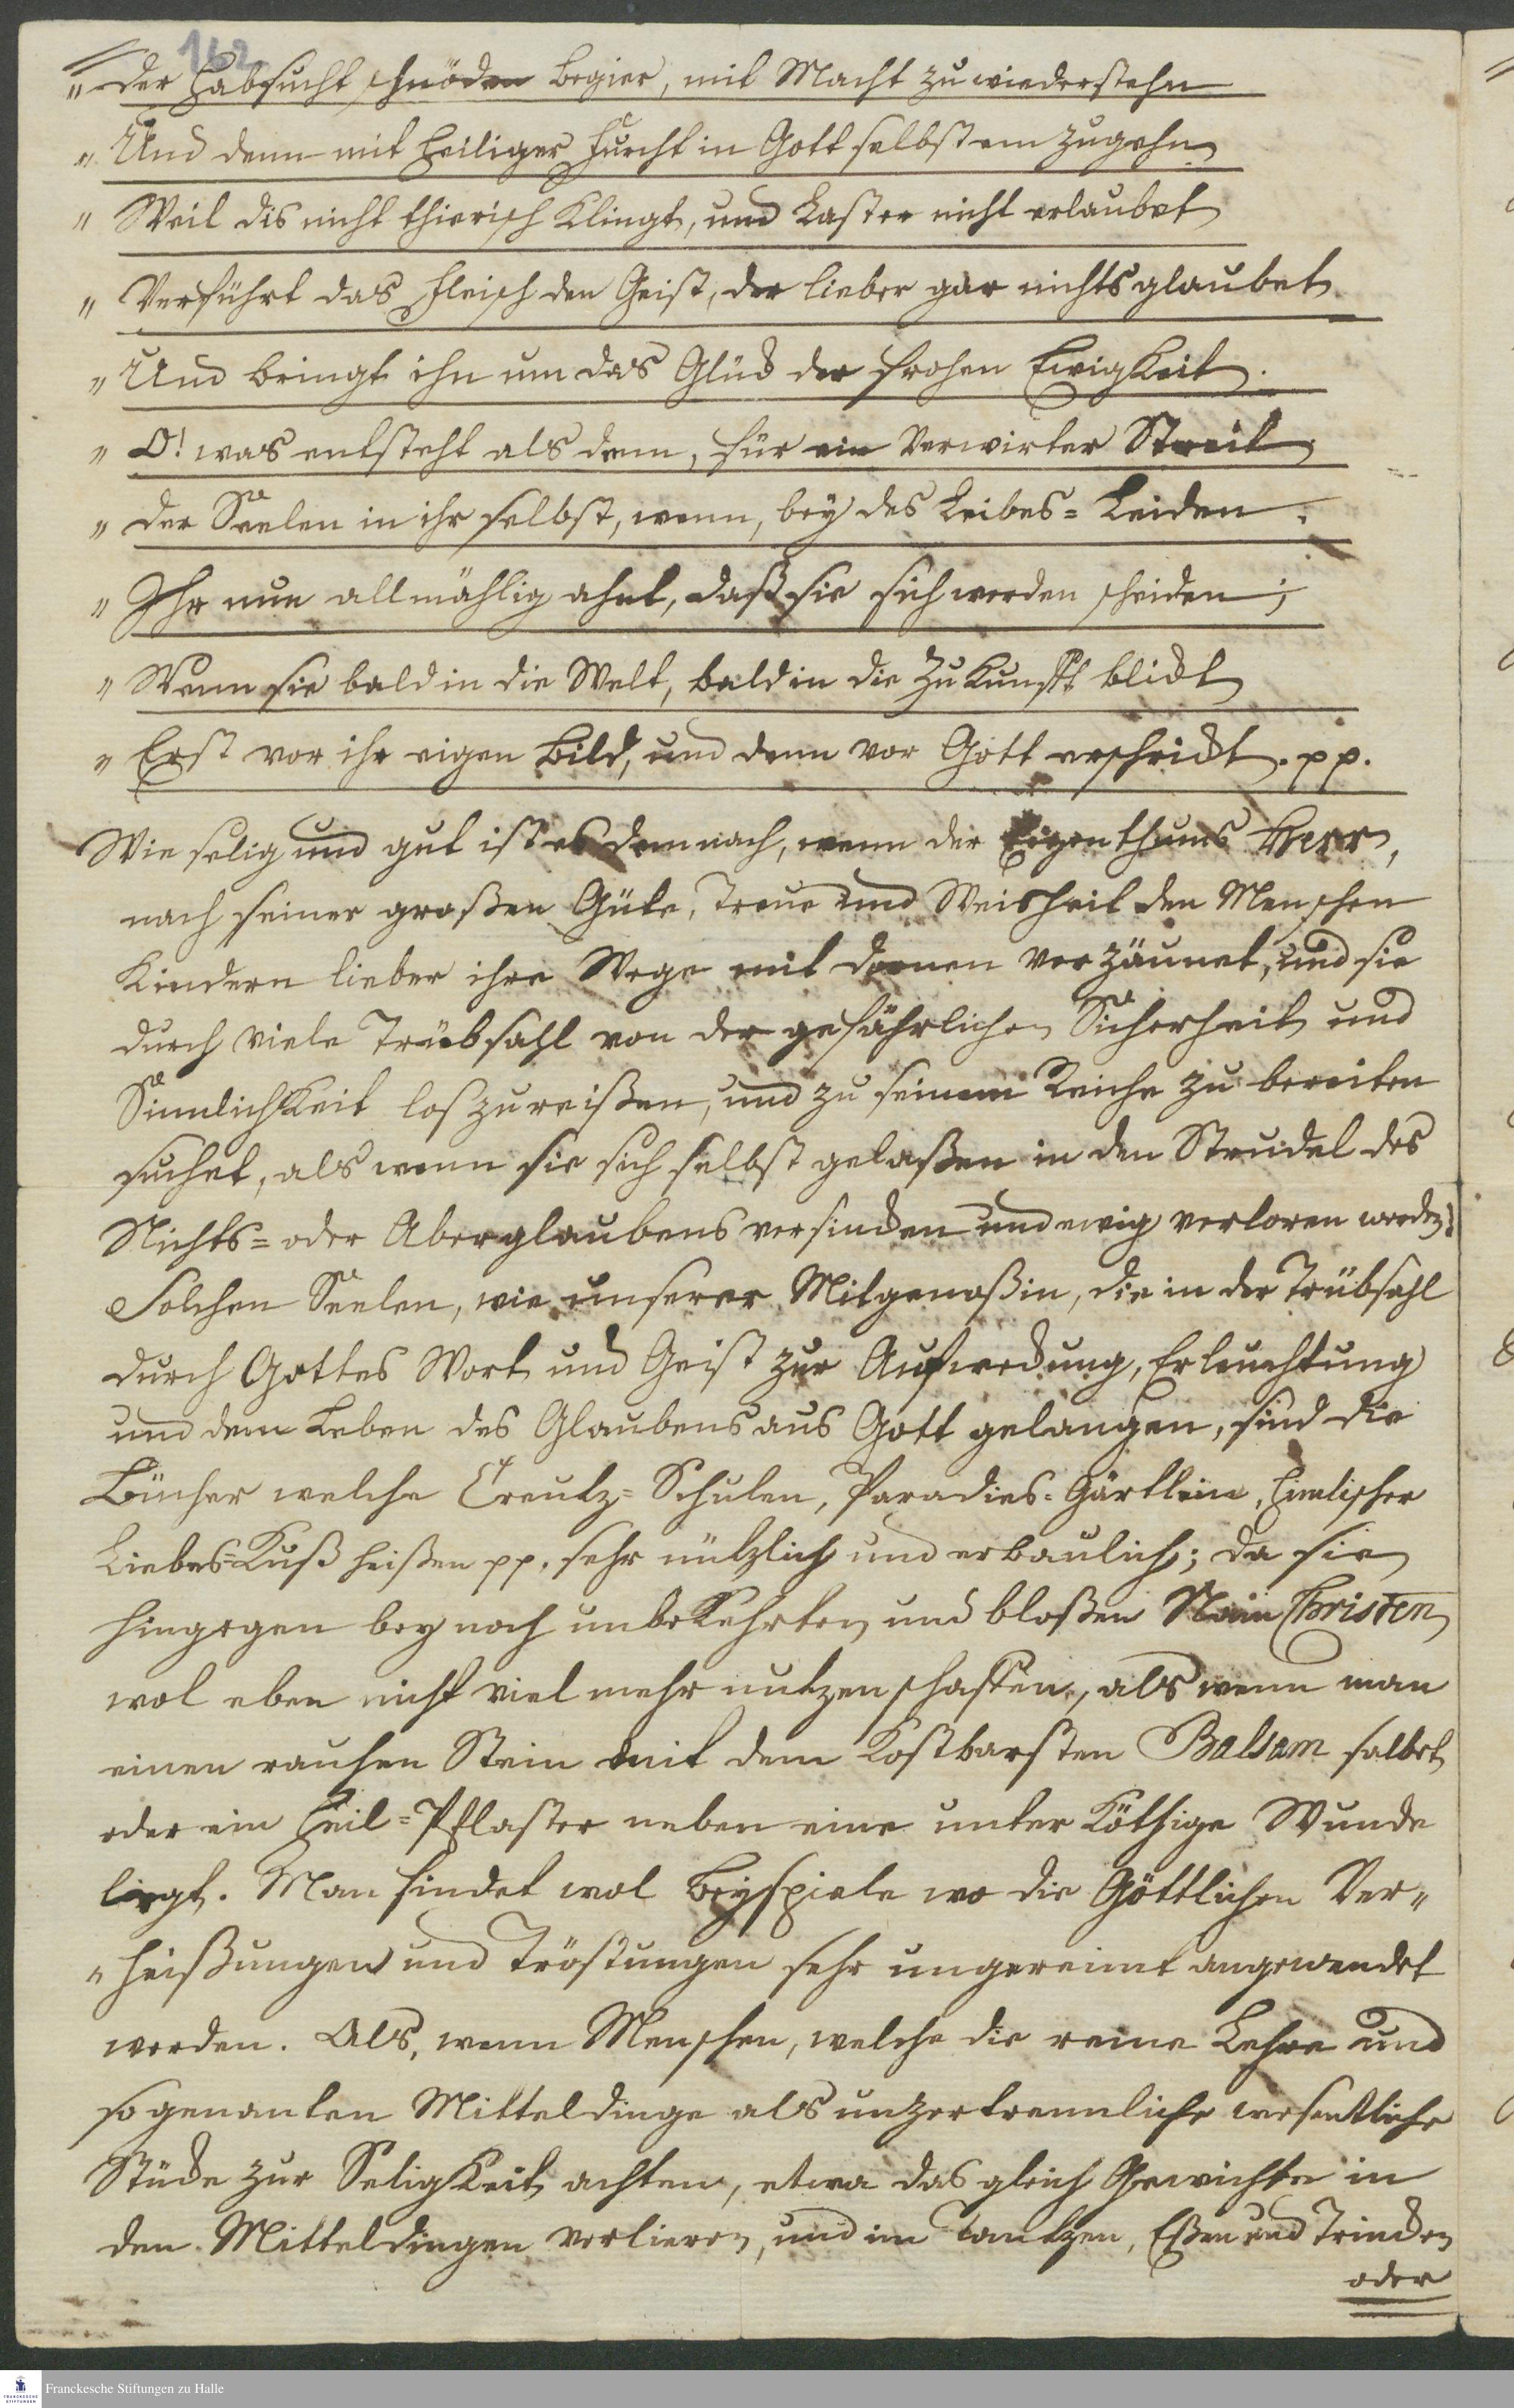 162
„ der Habsucht schnöden Begier, mit Macht zu wiederstehn
„ Und denn mit heiliger Furcht in Gott selbst ein zugehn
„ Weil dis nicht thierisch Klingt, und Laster nicht erlaubet
„ Verführt das Fleisch den Geist, der lieber gar nichts glaubet
„ Und bringt ihn um das Glück der frohen EwigKeit.
„ O! was entsteht als denn, für ein Verwirter Streit
„ der Seelen in ihr selbst, wenn, bey des Leibes = Leiden.
„ Ihr nun allmählig ahnt, daß sie sich werden scheiden;
„ Wenn sie bald in die Welt, bald in die ZuKunfft blickt
„ Erst vor ihr eigen Bild, und denn vor Gott erschrickt. pp.
Wie selig und gut ist es demnach, wenn der Eigenthums Herr,
nach seiner großen Güte, Treue und Weisheit den Menschen
Kindern lieber ihre Wege mit dornen verzäunet, und sie
durch viele Trübsahl von der gefährlichen Sicherheit und
SinnlichKeit loszureißen, und zu seinem Reiche zu bereiten
suchet, als wenn sie sich selbst gelaßen in den Strudel des
Nichts = oder Aberglaubens versincken und ewig verloren werden!
Solchen Seelen, wie unserer Mitgenoßin, die in der Trübsahl
durch Gottes Wort und Geist zur Aufweckung, Erleuchtung
und dem Leben des Glaubens aus Gott gelangen, sind die
Bücher welche Creutz = Schulen, Paradies = Gärtlein, Himlischer
Liebes = Kuß heißen pp. sehr nützlich und erbaulich; da sie
hingegen bey noch unbeKehrten und bloßen Nam Christen
wol eben nicht viel mehr nutzen schaffen, als wenn man
einen rauhen Stein mit dem Kostbarsten Balsam salbet
oder ein Heil = Pflaster neben eine unter Köthige Wunde
liegt. Man findet wol Beyspiele wo die Göttlichen Ver„
„heißungen und Tröstungen sehr ungereimt angewendet
werden. Als, wenn Menschen, welche die reine Lehre und
so genanten Mitteldinge als unzertrennliche wesentliche
Stücke zur SeligKeit achten, etwa das gleich Gewichte in
den Mitteldingen verlieren, und im Tantzen, Eßen und Trincken
oder
FRANCKESCHE STIFTUNGEN
Franckesche Stiftungen zu Halle